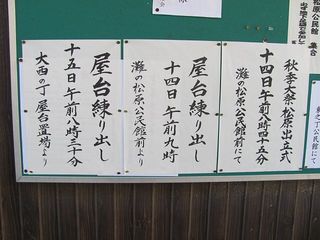 松原公民館 集合
秋季大祭松原出立式
十四日午前八時四十五分
灘の松原公民館前にて
屋台練り出し
十四日午前九時
灘の松原公民館前より
屋台練り出し
十五日午前八時三十分
大西の丁屋台置場より